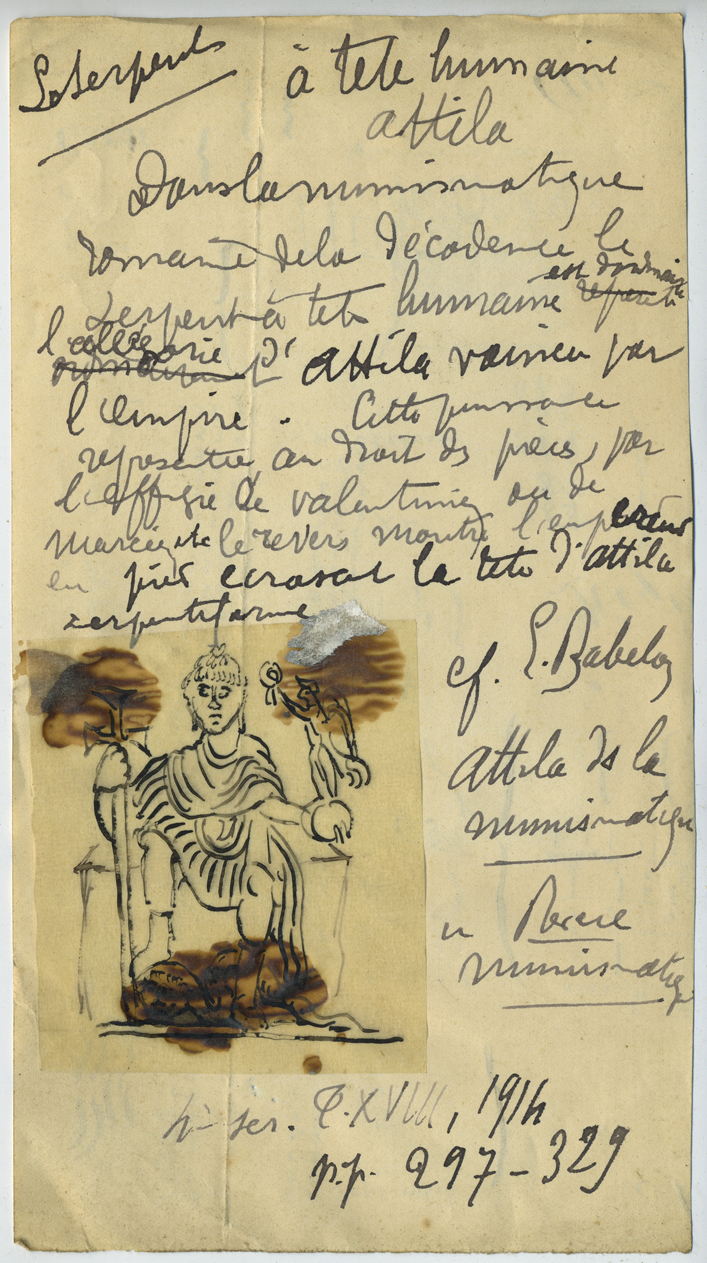 Le serpent
à tete humaine
attila
Dans la numismatique
romaine de la décadence le
serpent à tete humaine est
l'allégorie d'attila vaincu par
l'empire. Cette puissance
representée au droit des pièces, par
l'effigie de valentinien ou de
marcien et le revers montre l'empereur
en pied ecrasant la tete d'attila
serpentiforme
cf. E. Babelon
attila ds la
numismatique
in Revue
numismatique
4e ser. T. XVIII, 1914
pp. 297-329